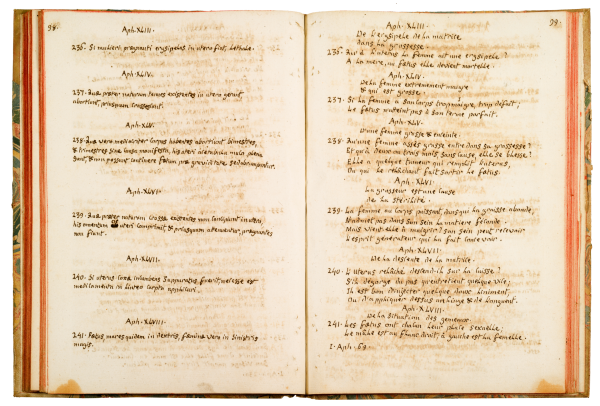 98.
Aph. XLIII.
236. Si mulieri praegnanti erysipelas in utero fiat, Lethale.
Aph. XLIV.
237. Quae praeter naturam tenues existentes in utero gerunt
abortiunt, priusquam crassescant.
Aph. XLV.
238. Quae vero mediocriter corpus habentes abortiunt bimestres,
& trimestres sine causa manifesta, his uteri acetabula muco plena
sunt, & non possunt continere foetum prae gravitate sed abrumpuntur.
Aph. XLVI.
239. Quae praeter naturam crassae existentes non concipiunt in utero,
his omentum os uteri comprimit, & priusquam attenuentur, praegnantes
non fiunt.
Aph. XLVII.
240. Si uterus coxae incumbens suppuratus fuerit, necesse est
Aph. XLVIII.
241. Foetus mares quidem in dextris, femina vero in sinistris
magis.
99.
Aph. XLIII.
De l'erysipele de la matrice
dans la grossesse.
236. à l'uterus la femme ait une erysipele?
A la mere, au foetus elle devient mortelle.
Aph. XLIV.
De la femme extremement maigre
& qui est grosse.
237. Si la femme a son corps trop maigre, trop defait;
Le foetus n'atteint pas à son terme parfait.
Aph. XLV.
D'une femme grosse & enceinte.
238. Qu'une femme assés grasse entre dans sa grossesse?
Et qu'à deux ou trois mois, sans cause, elle se blesse?
Elle a quelque humeur qui remplit l'uterus,
Ou qui le relâchant fait sortir le foetus.
Aph. XLVI.
La grosseur est une cause
de la stérilité.
239. La femme au corps puissant, dans qui la graisse abonde,
N'admet pas dans son sein la matiere féconde.
Mais vient-elle à maigrir? son sein peut recevoir
L'esprit generateur qui la fait concevoir.
Aph. XLVII.
De la descente de la matrice.
240. L'uterus relâché descend-il sur la cuisse?
S'il dégorge du pus qu'entretient quelque vice;
Il est bon d'injecter quelque doux liniment,
Ou d'appliquer dessus un linge & de l'onguent.
Aph. XLVIII.
De la situation des gemeaux.
241. Les foetus ont chacun leur place sexuelle;
Le mâle est au flanc droit, à gauche est la femelle.